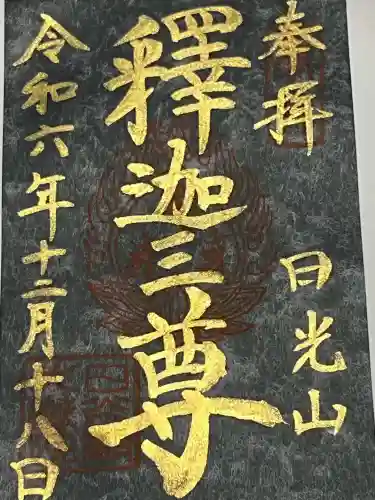 奉拝
日光山
釋迦三尊
令和六年十二月十八日